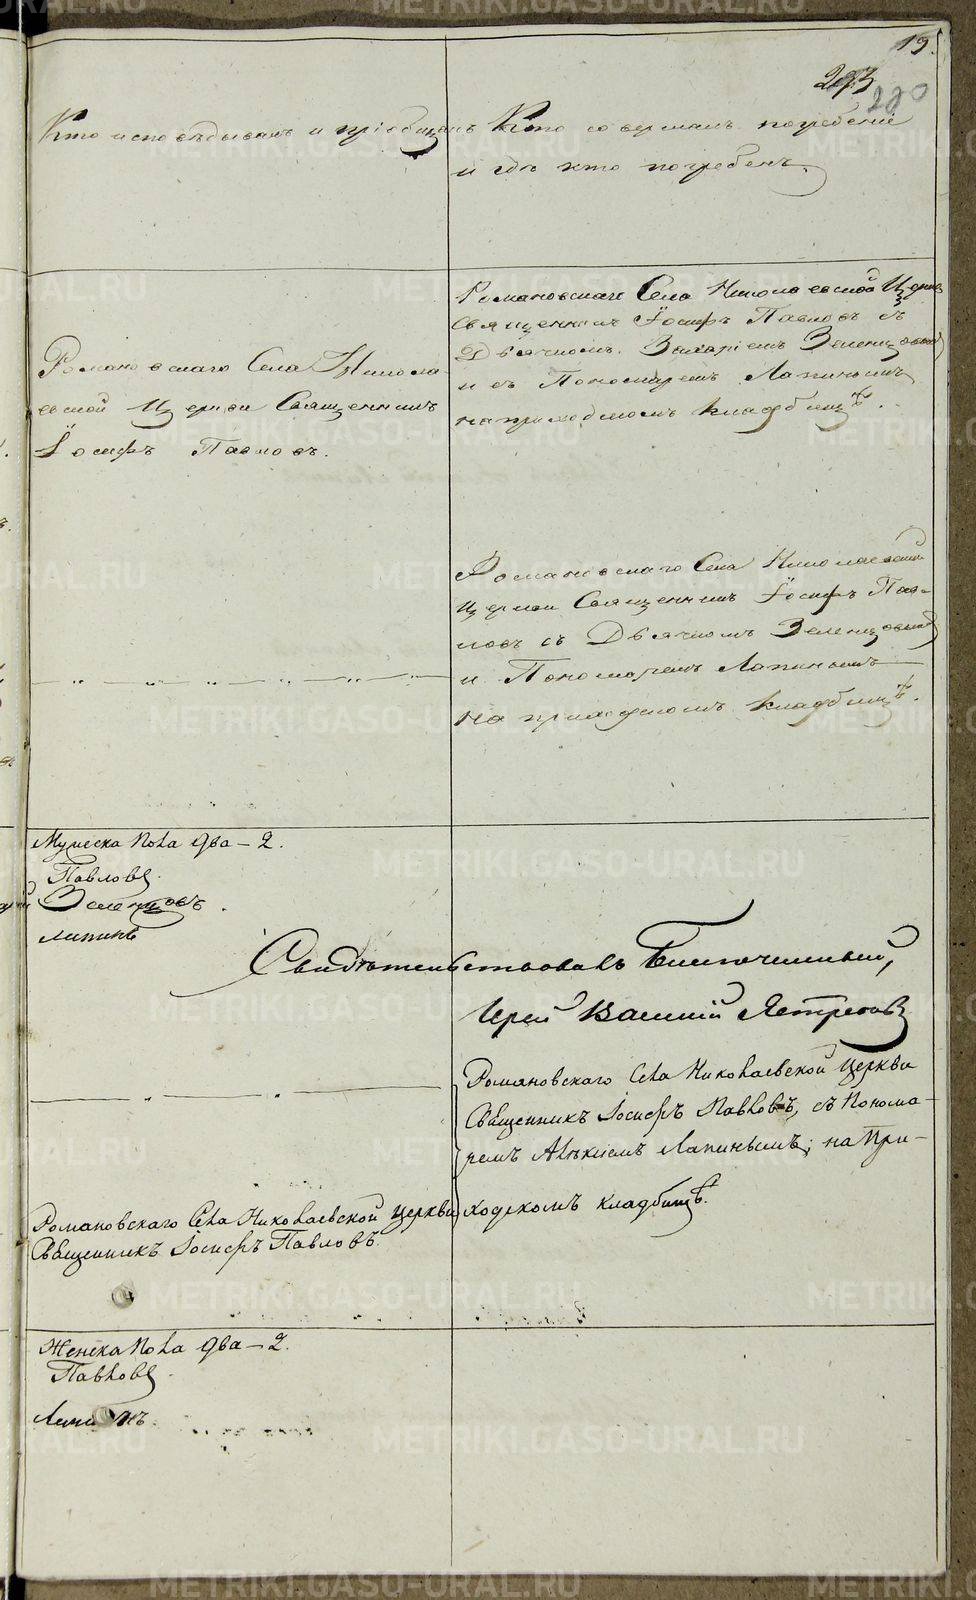 19.
293
280
Кто исповѣдывалъ и пріобщалъ
Кто совершалъ погребеніе
и гдѣ кто погребенъ.
Романовскаго Села Никола
евской Церкви Священникъ
Іосифъ Павловъ.
Романовскаго Села Николаевской Церкви
Священникъ Іосифъ Павловъ съ
Дьячкомъ Захаріемъ Зеленцовымъ
и съ Пономаремъ Лапинымъ
на приходскомъ кладбищѣ.
Романовскаго Села Николаевской
Церкви Священникъ Іосифъ Пав-
ловъ съ Дьячкомъ Зеленцовымъ
и Пономаремъ Лапинымъ
на приходскомъ кладбищѣ.
Мужеска пола два – 2.
Павловъ.
Зеленцовъ.
Лапинъ
Свидѣтельствовалъ Благочинный,
Іерей Василій Ястребовъ
Романовскаго Села Николаевской Церкви
Священникъ Іосифъ Павловъ, съ Понома-
ремъ Алѣкіемъ Лапинымъ; на При-
ходскомъ кладбищѣ.
Романовскаго Села Николаевской Церкви
Священникъ Іосифъ Павловъ.
Женска пола два – 2.
Павловъ.
Лапинъ.
METRIKI.GASO-URAL.RU